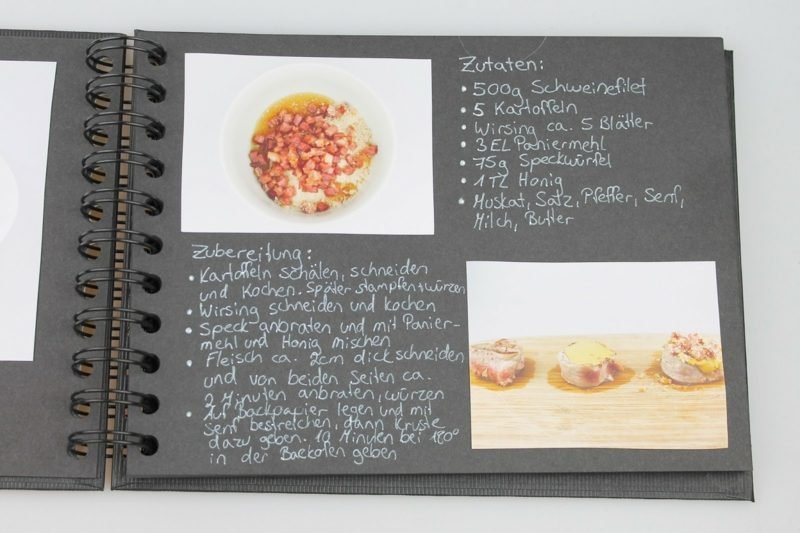 Zutaten:
• 500g Schweinefilet
• 5 Kartoffeln
• Wirsing ca. 5 Blätter
• 3 EL Paniermehl
• 75g Speckwürfel
• 1 TL Honig
• Muskat, Salz, Pfeffer, Senf,
Milch, Butter
Zubereitung:
• Kartoffeln schälen, schneiden
und kochen. Später stampfen + würzen
• Wirsing schneiden und kochen
• Speck anbraten und mit Panier-
mehl und Honig mischen
• Fleisch ca. 2cm dick schneiden
und von beiden Seiten ca.
2 Minuten anbraten, würzen
• Auf Backpapier legen und mit
Senf bestreichen, dann Kruste
dazu geben. 10 Minuten bei 180°
in der Backofen geben